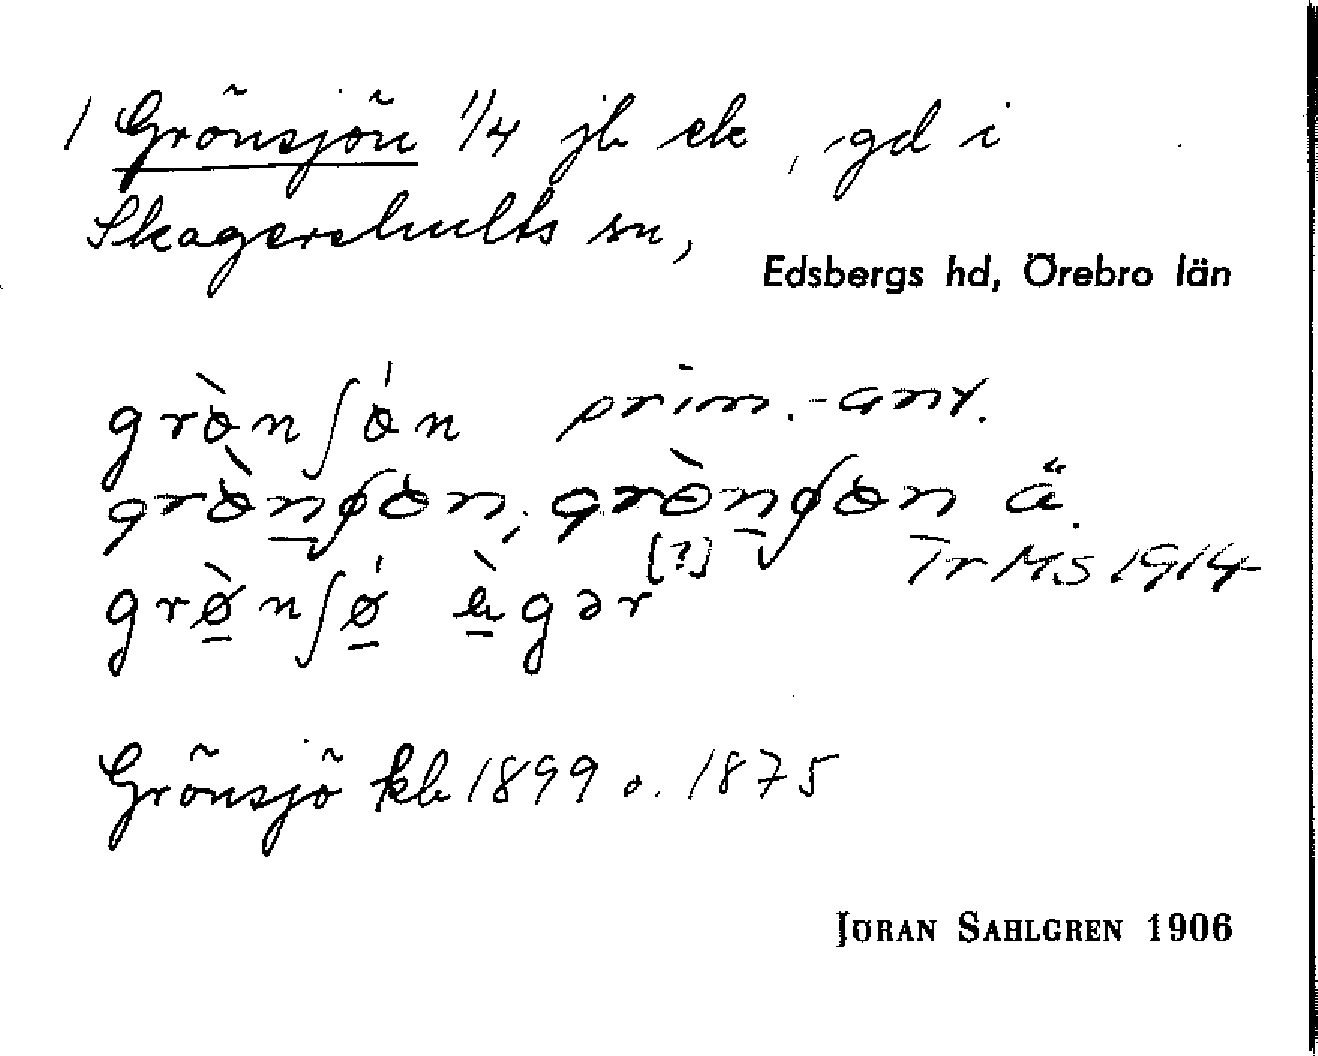 1 Grönsjön 1/4 jb ek, gd i
Skagershults sn,
Edsbergs hd, Örebro län
grɵ̀nʃɵ́n prim.-anv.
grɵ̀nʃɵn, grɵ̀nʃɵn ä.
[?] Tr Ms 1914
grø̀nʃǿ ægər
Grönsjö kb 1899 o. 1875
JÖRAN SAHLGREN 1906